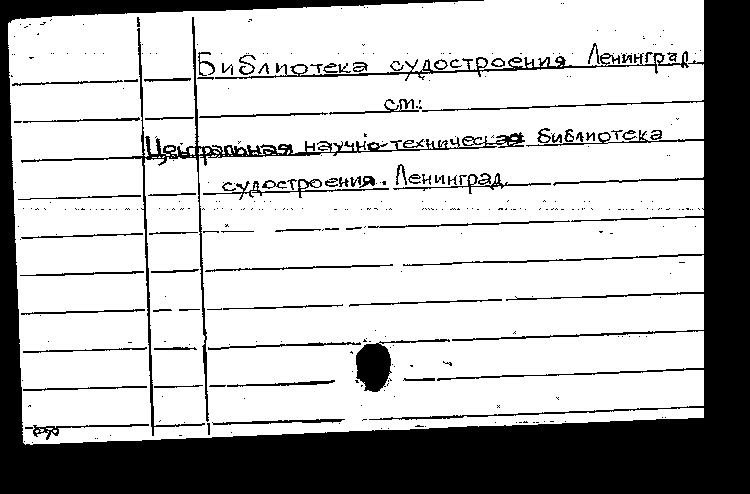 Библиотека судостроения. Ленинград.
см.:
Центральная научно-техническая библиотека
судостроения. Ленинград.